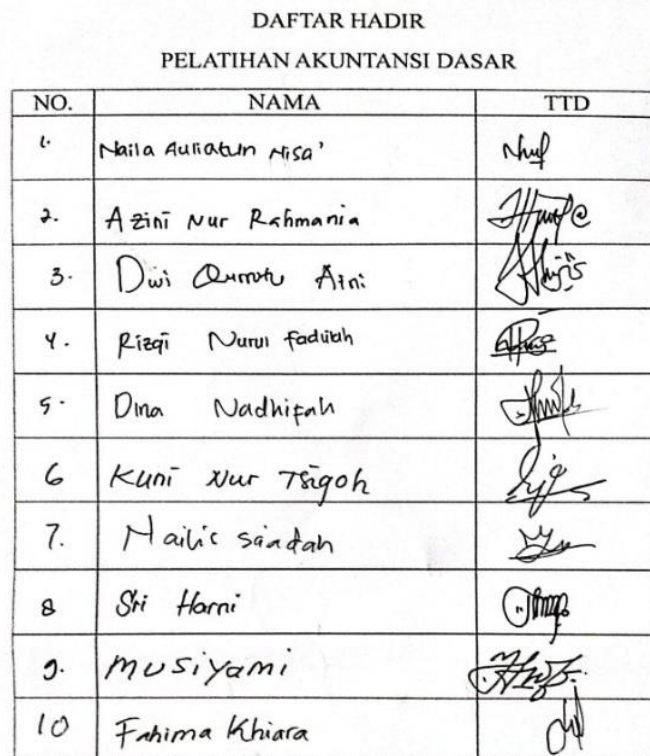 DAFTAR HADIR
PELATIHAN AKUNTANSI DASAR
NO. NAMA TTD
1. Naila Auliatun Nisa'
2. Azini Nur Rahmania
3. Dwi Qurrotu Aini
4. Rizqi Nurul fadillah
5. Dina Nadhifah
6 Kuni Nur Tsiqoh
7. Nailis saadah
8 Sri Harni
9. musiyami
10 Fahima Khiara